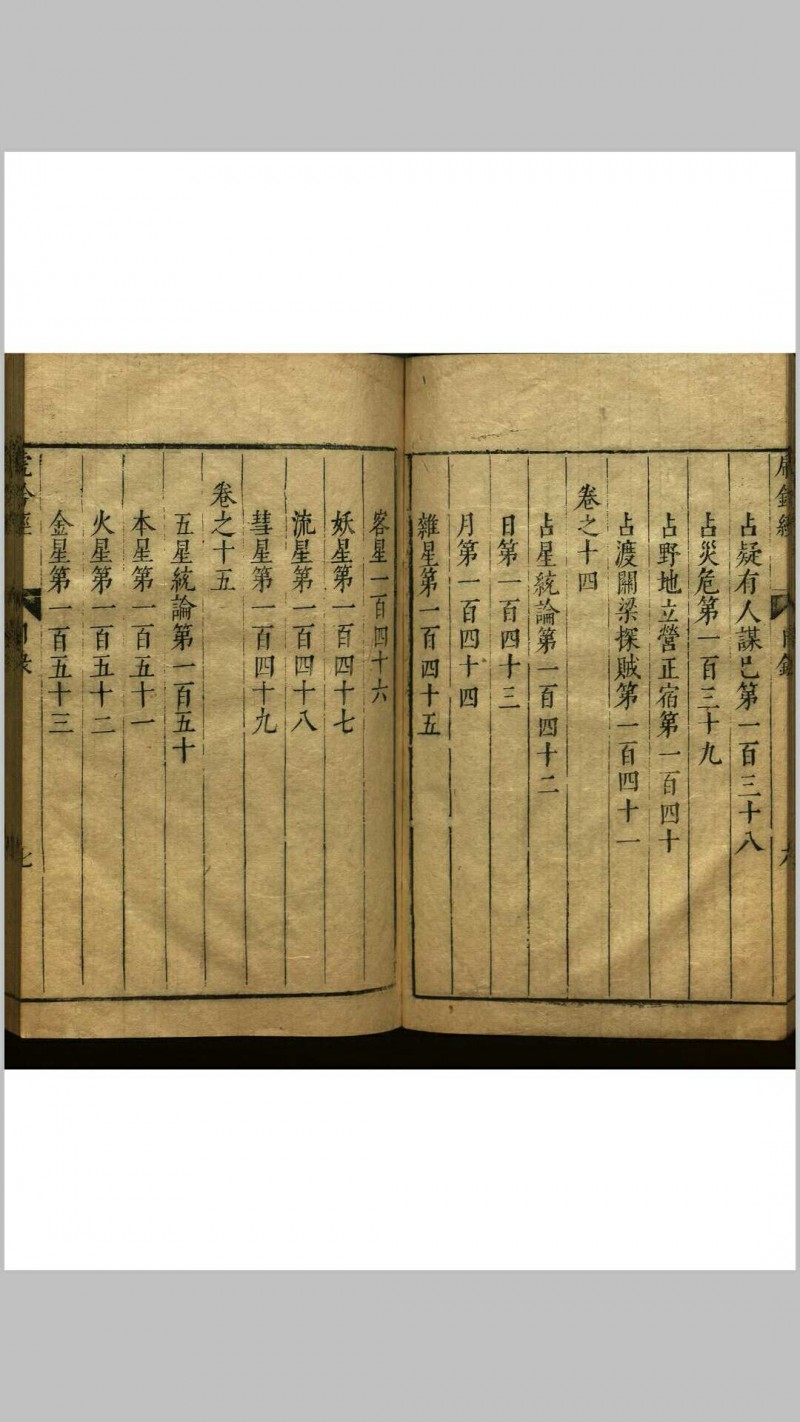 占疑有人謀已第一百三十八
占災危第一百三十九
占野地立營正宿第一百四十
占渡關梁探賊第一百四十一
卷之十四
占星統論第一百四十二
日第一百四十三
月第一百四十四
雜星第一百四十五
客星一百四十六
妖星第一百四十七
流星第一百四十八
彗星第一百四十九
卷之十五
五星統論第一百五十
本星第一百五十一
火星第一百五十二
金星第一百五十三